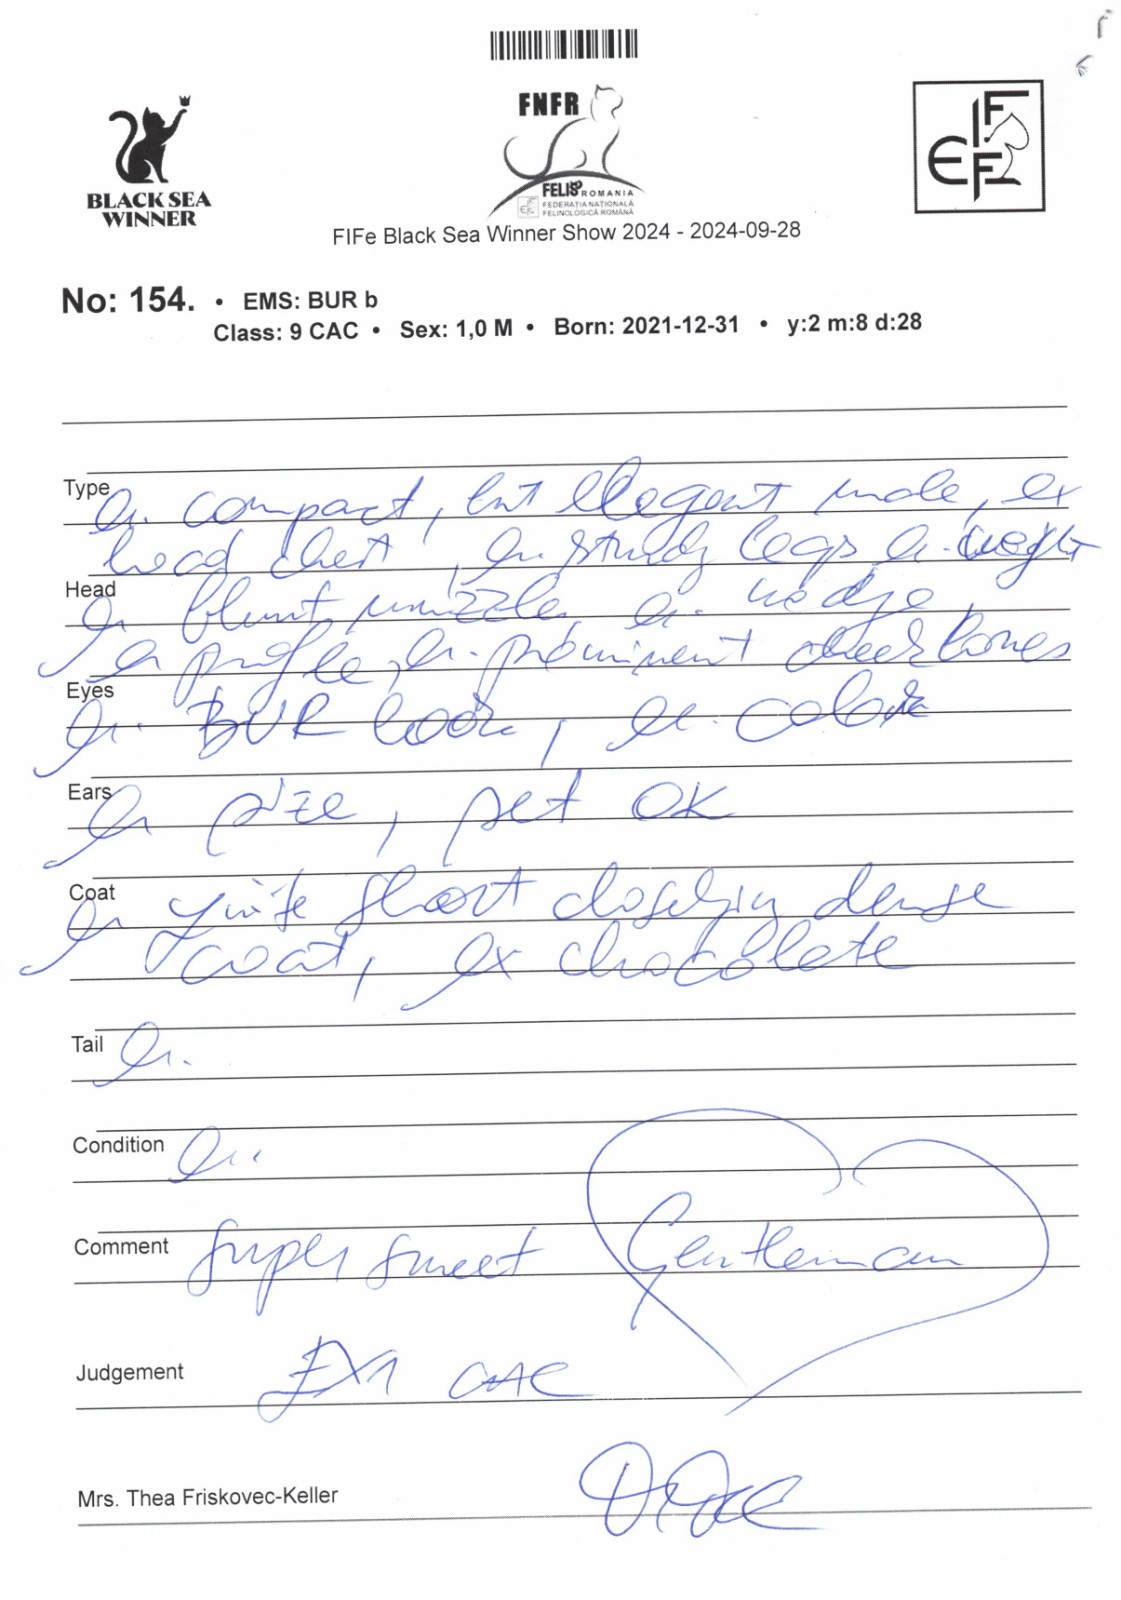 FNFR
BLACK SEA
WINNER
FELIS ROMANIA
FEDERAȚIA NAȚIONALĂ
FELINOLOGICĂ ROMÂNĂ
FIFe
FIFe Black Sea Winner Show 2024 - 2024-09-28
No: 154. • EMS: BUR b
Class: 9 CAC • Sex: 1,0 M • Born: 2021-12-31 • y:2 m:8 d:28
Type ex. compact, but ellegant male, ex
chest, ex. sturdy legs ex. weight
Head ex blunt muzzle, ex. wedge,
ex profile, ex. prominent cheekbones
Eyes ex. BUR look, ex. color
Ears ex size, set OK
Coat ex quite short dense
coat, ex chocolate
Tail ex.
Condition ex.
Comment super sweet Gentleman
Judgement EX1 CAC
Mrs. Thea Friskovec-Keller